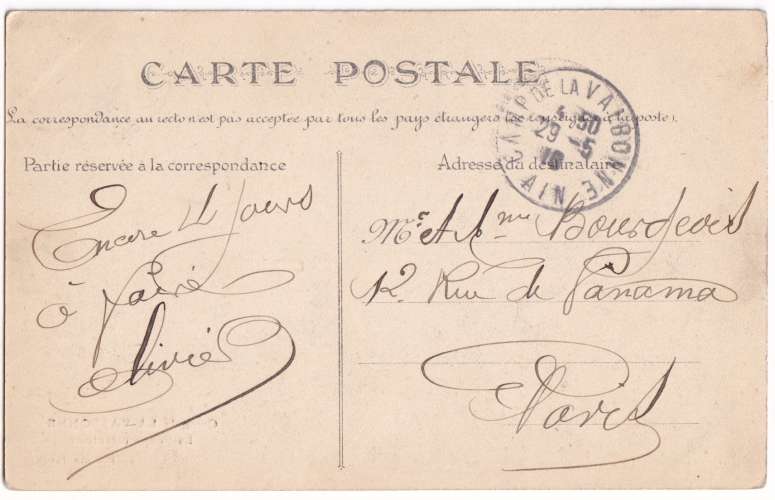 CARTE POSTALE
La correspondance au recto n'est pas acceptée par tous les pays étrangers (se renseigner à la poste).
CAMP DE LA VALBONNE
29 - 5
AIN
Partie réservée à la correspondance
Adresse du destinataire
Encore 4 Jours
à faire
Olivier
Mr et Mme Bourgeois
12 Rue de Panama
Paris